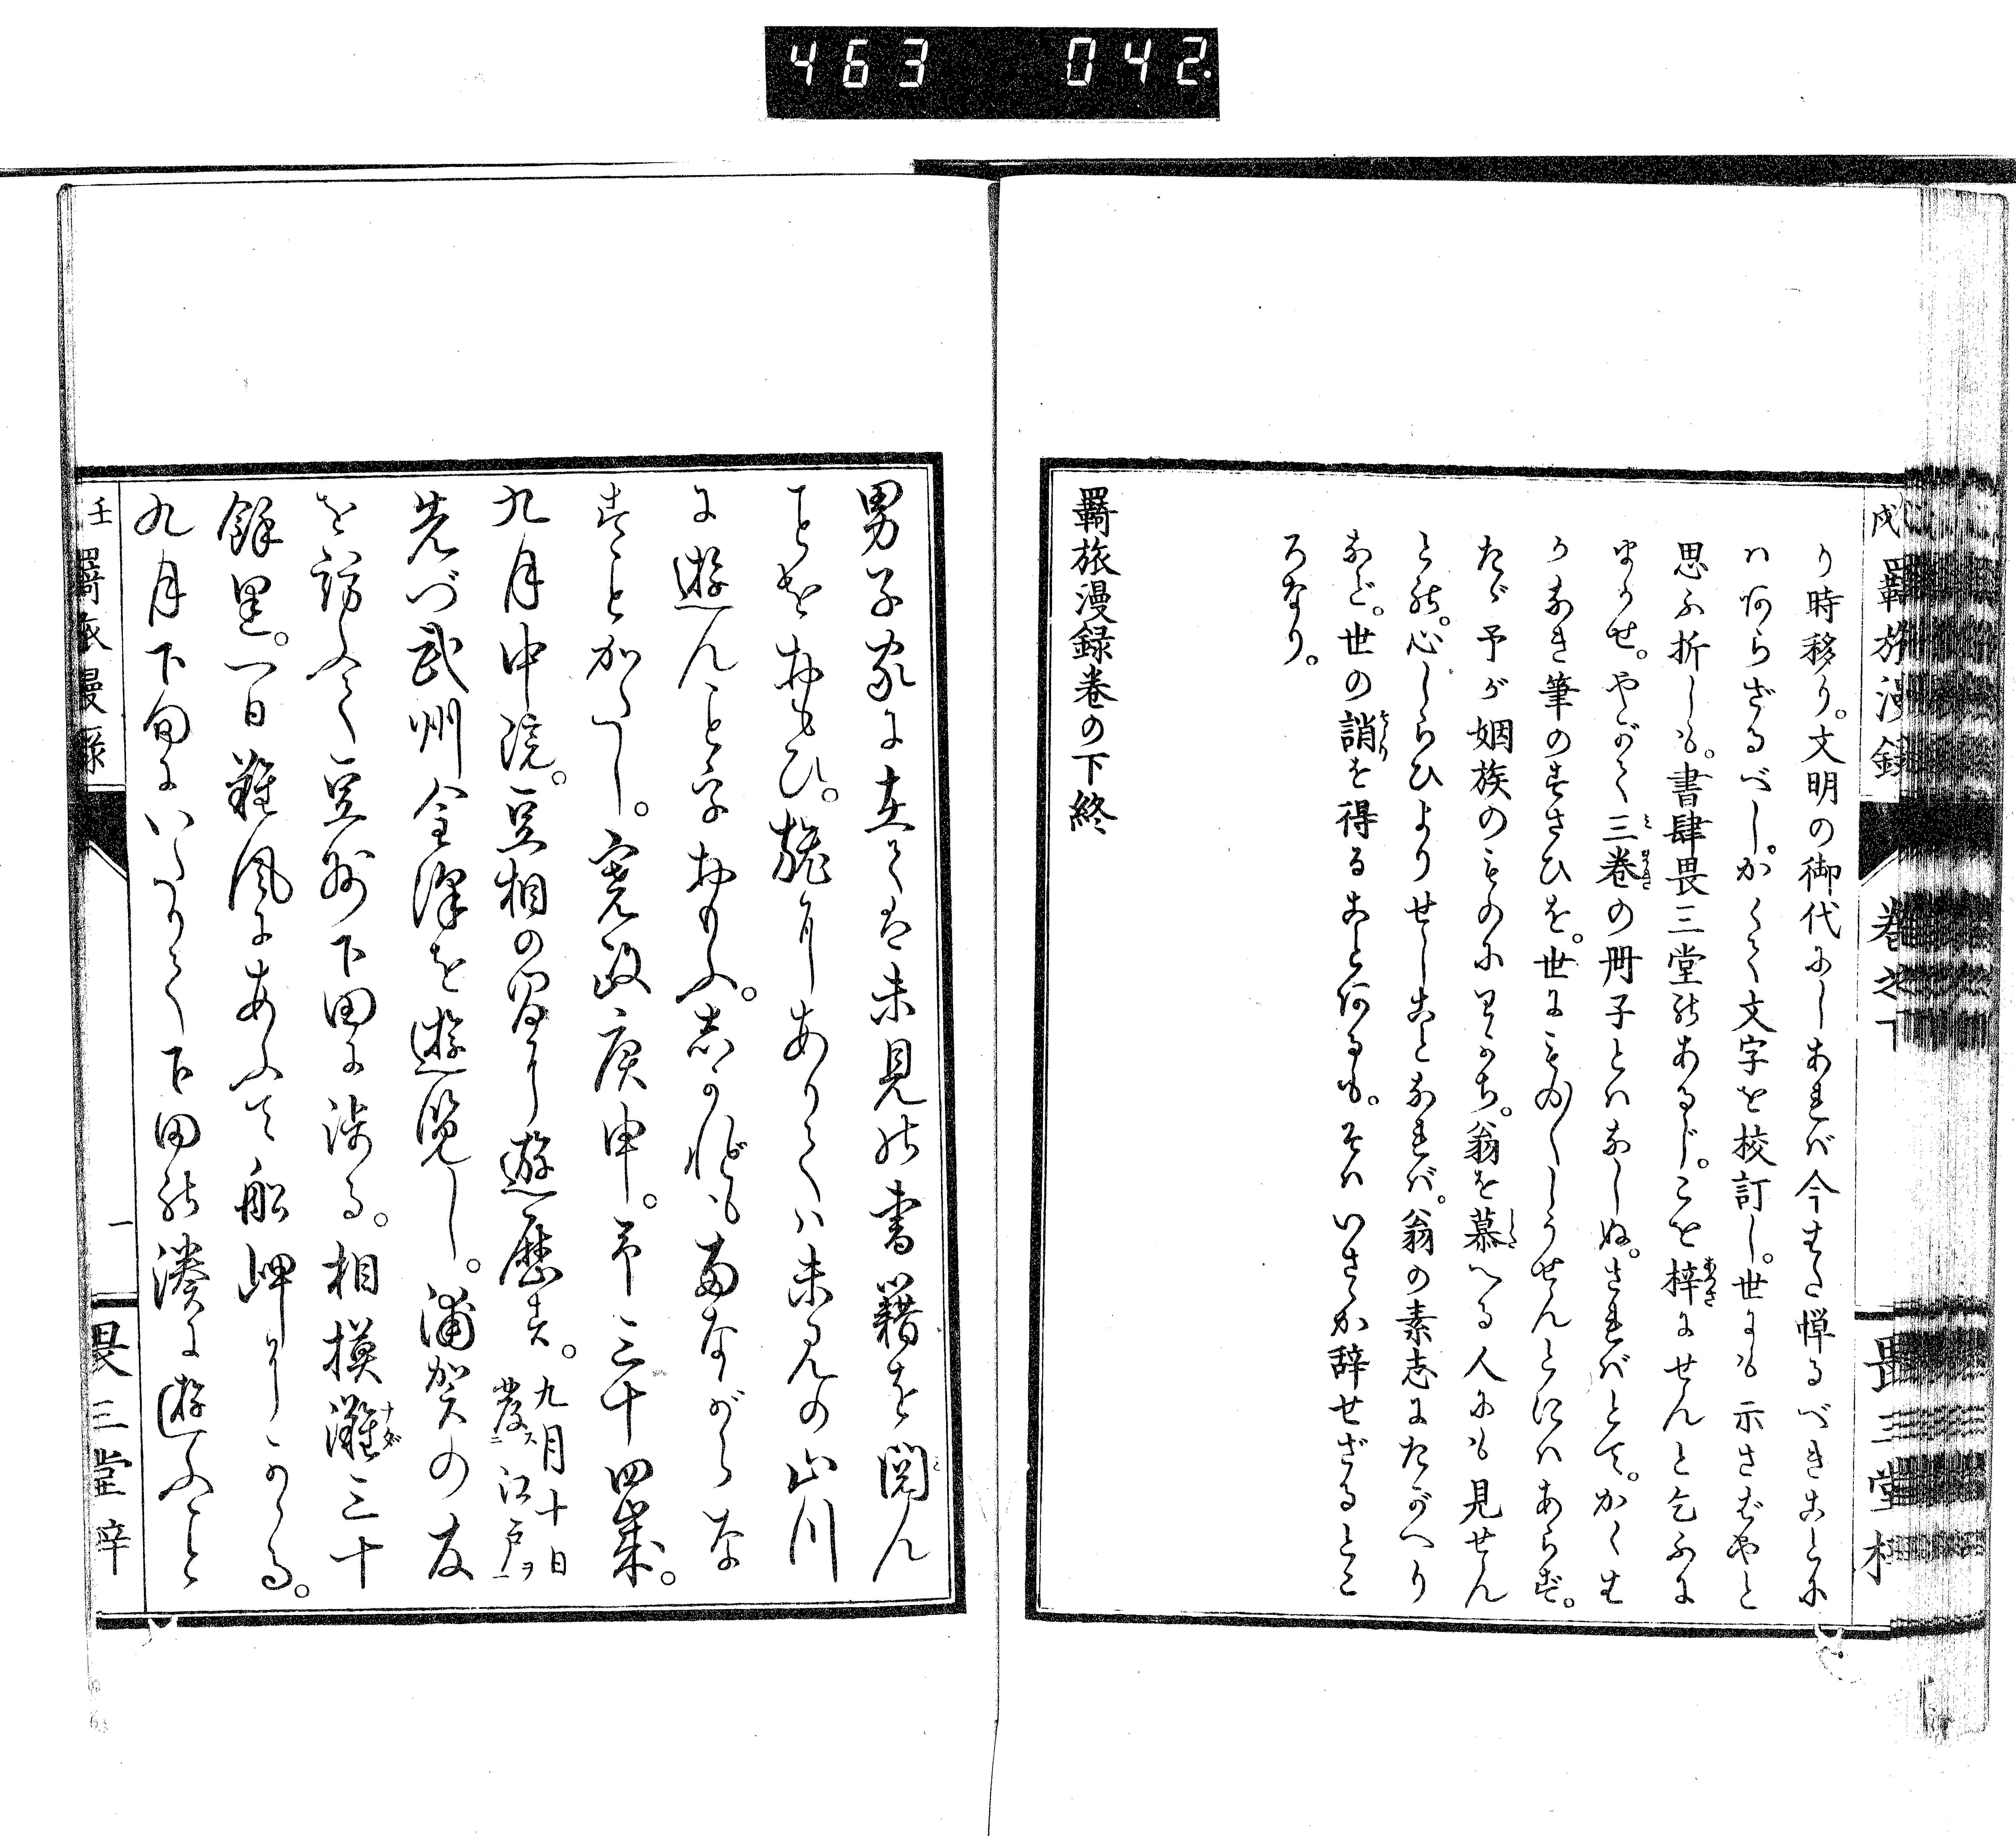 463 042
戌 羇旅漫録 巻之下 畏三堂梓
り時移り。文明の御代にしあれば今はた憚るべきことに
はあらざるべし。かくて文字を校訂し。世にも示さばやと
思ふ折しも。書肆畏三堂のあるじ。こを梓にせんと乞ふに
まかせ。やがて三巻の冊子とはなしぬ。さればとて。かくは
かなき筆のすさひを。世にものしうせんとにはあらず。
たゞ予が姻族のものにわかち。翁を慕へる人にも見せん
との。心しらひよりせしことなれば。翁の素志にたがへり
など。世の誚を得ることあるも。そはいさゝか辞せざるとこ
ろなり。
羇旅漫録巻の下終
男子家に在ては未見の書籍を閲ん
ことをおもひ。旅にありては未見の山川
に遊んことをおもふ。志かれども両ながらな
すことかたし。寛政庚申。予三十四歳。
九月中浣。豆相の間に遊歴す。九月十日発江戸
先づ武州金澤を遊覧し。浦賀の友
を訪ふて豆州下田に渉る。相模灘三十
餘里。一日難風にあふて船岬にかゝる。
九月下旬にいたりて下田の湊に遊ふこと
壬 羇旅漫録 一 畏三堂梓